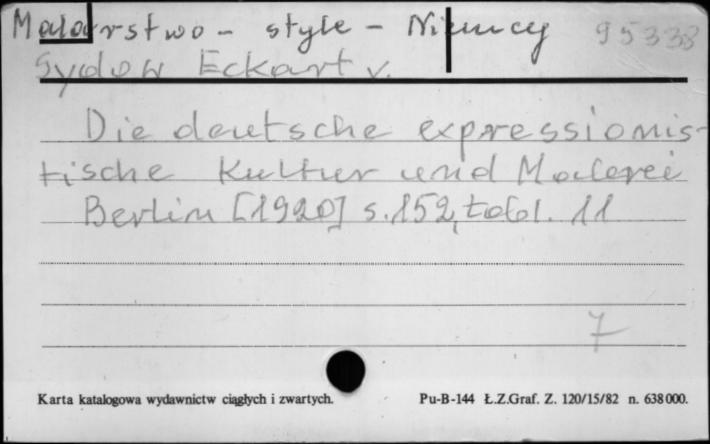 Malarstwo - style - Niemcy 95338
Sydow Eckart v.
Die deutsche expressionis-
tische Kultur und Malerei
Berlin [1920] s.152, tabl. 11
7
Karta katalogowa wydawnictw ciągłych i zwartych. Pu-B-144 Ł.Z.Graf. Z. 120/15/82 n. 638000.